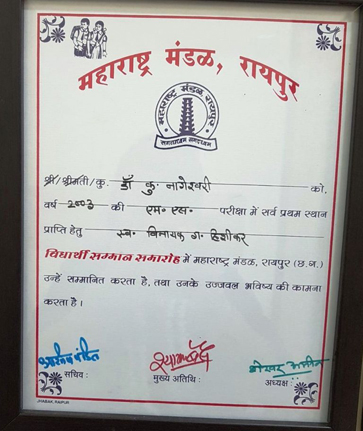 महाराष्ट्र मंडळ, रायपुर
महाराष्ट्र मंडळ रायपुर
श्री/श्रीमती/कु. डॉ कु. नागेश्वरी को,
वर्ष 2003 की एम. एस. परीक्षा में सर्व प्रथम स्थान
प्राप्ति हेतु स्व. विनायक ग.
विद्यार्थी सम्मान समारोह में महाराष्ट्र मंडळ, रायपुर (छ.ग.)
उन्हें सम्मानित करता है, तथा उनके उज्जवल भविष्य की कामना
करता है।
सचिव :
मुख्य अतिथि :
अध्यक्ष :
JHARAK, RAIPUR